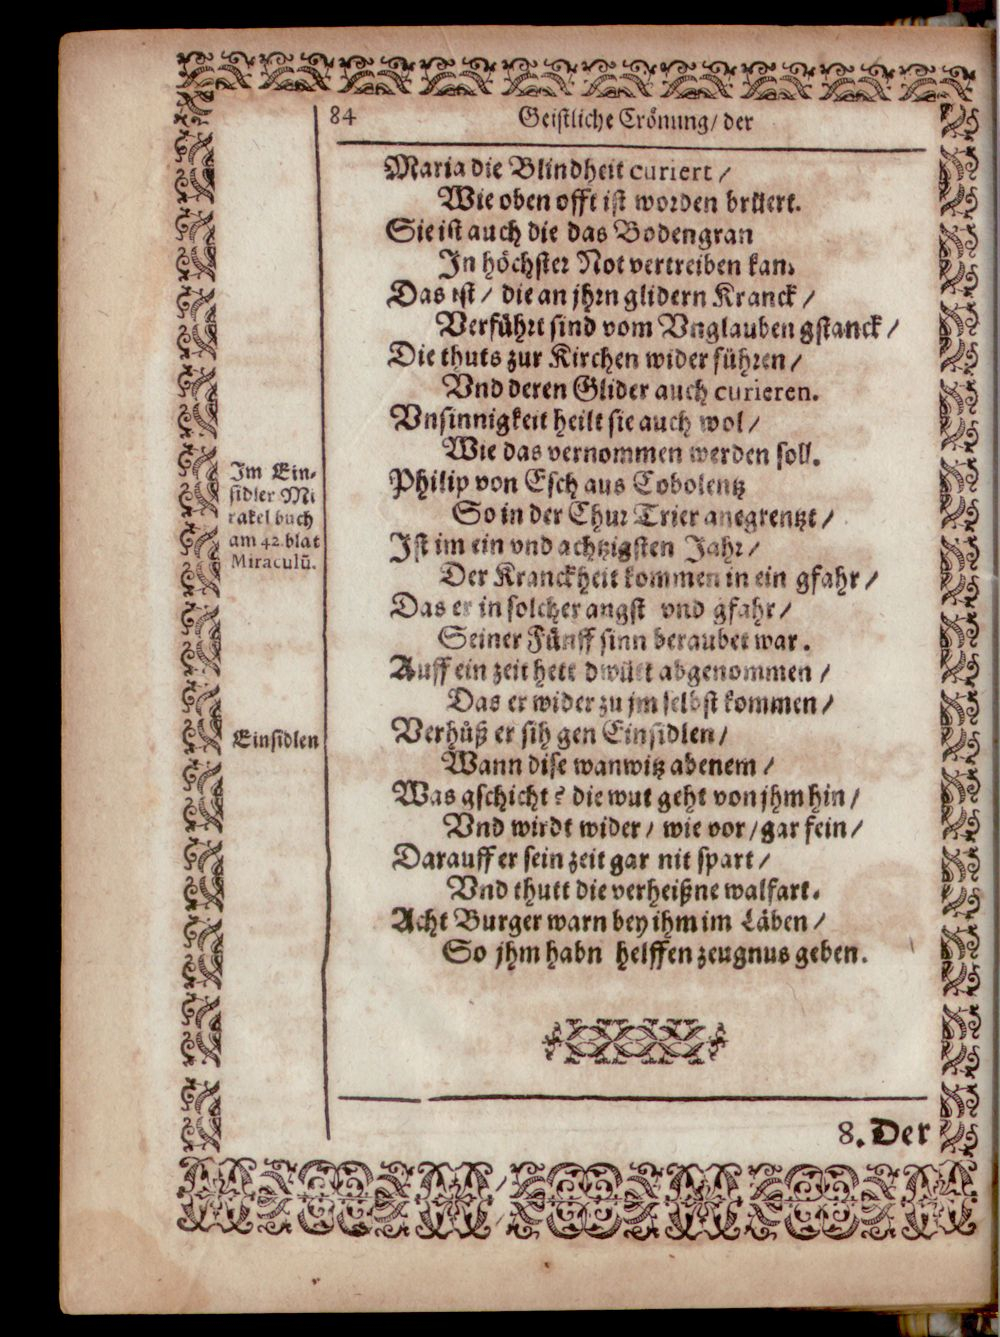 84 Geistliche Crönung/ der
Maria die Blindheit curiert /
Wie oben offt ist worden brüert.
Sie ist auch die das Bodengran
In höchster Not vertreiben kan.
Das ist / die an jhrn glidern Kranck /
Verführt sind vom Vnglauben gstanck /
Die thuts zur Kirchen wider führen /
Vnd deren Glider auch curieren.
Vnsinnigkeit heilt sie auch wol /
Wie das vernommen werden soll.
Im Ein-
sidler Mi
rakel buch
am 42. blat
Miraculū.
Philip von Esch aus Cobolentz
So in der Chur Trier anegrentzt /
Ist im ein vnd achtzigsten Jahr /
Der Kranckheit kommen in ein gfahr /
Das er in solcher angst vnd gfahr /
Seiner Fünff sinn beraubet war.
Auff ein zeit hett dwütt abgenommen /
Das er wider zu jm selbst kommen /
Einsidlen
Verhůß er sih gen Einsidlen /
Wann dise wanwitz abenem /
Was gschicht? die wut geht von jhm hin /
Vnd wirdt wider / wie vor / gar fein /
Darauff er sein zeit gar nit spart /
Vnd thutt die verheißne walfart.
Acht Burger warn bey ihm im Läben /
So jhm habn helffen zeugnus geben.
8. Der